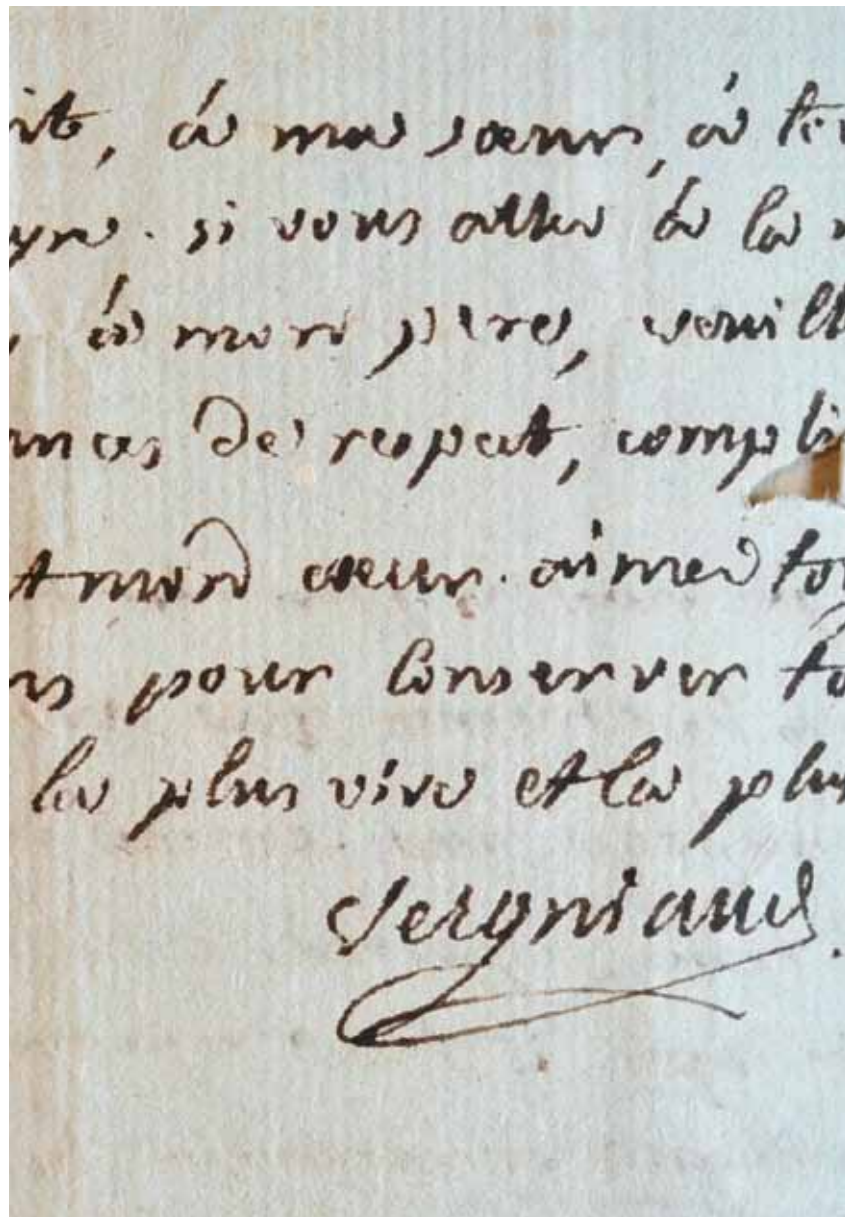 it, à ma sœur, à te
yre. si vous allez à la
, à mon père, veuill
ances de respect, compli
t mon cœur. aimez to
ns pour conserver to
la plus vive et la plus
Vergniaud.